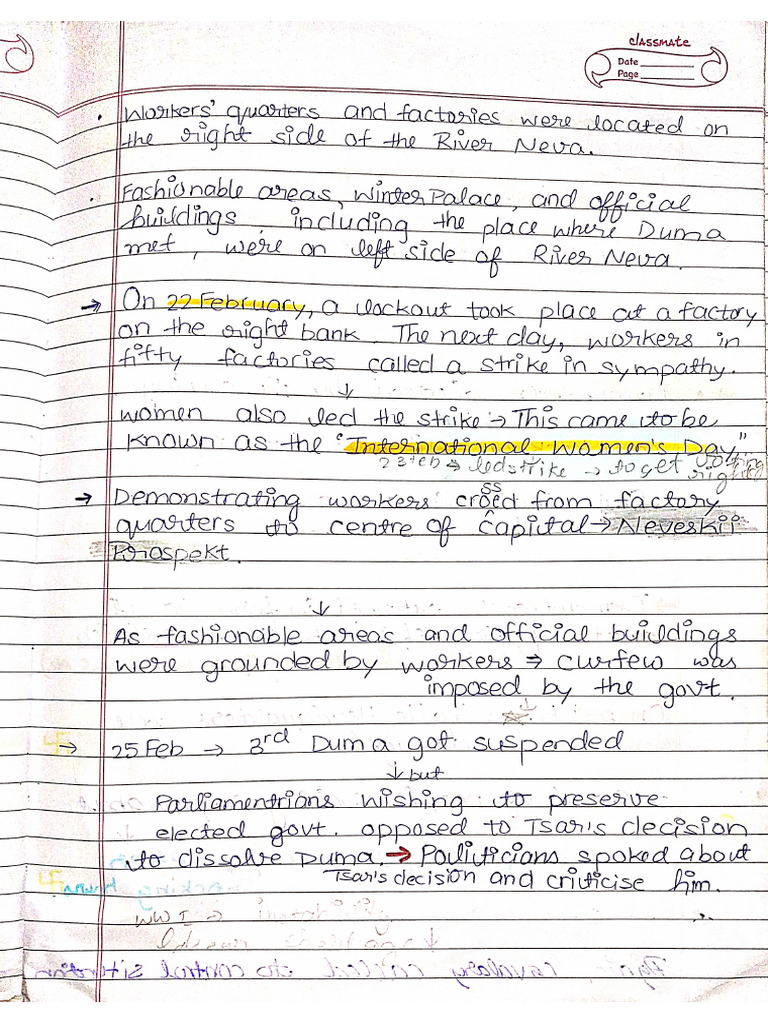 classmate
Date
Page
• Workers' quarters and factories were located on
the right side of the River Neva.
. Fashionable areas, Winter Palace, and official
buildings, including the place where Duma
met, were on left side of River Neva.
→ On 22 February, a lockout took place at a factory
on the right bank. The next day, workers in
fifty factories called a strike in sympathy.
↓
women also led the strike → This came to be
known as the "International Women's Day"
23 feb → led strike → to get voting
right
→ Demonstrating workers crossed from factory
quarters to centre of Capital → Neveskii
Prospekt.
↓
As fashionable areas and official buildings
were grounded by workers ⇒ curfew was
imposed by the govt.
→ 25 Feb → 3rd Duma got suspended
↓ but
Parliamentrians wishing to preserve
elected govt. opposed to Tsar's decision
to dissolve Duma. → Pouliticians spoked about
Tsar's decision and criticise him.
WWI →